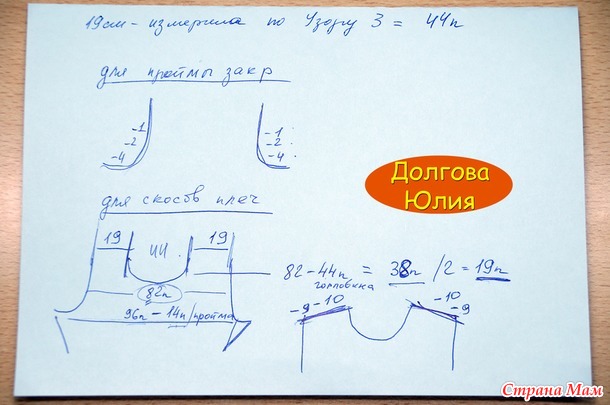 19см - измерила по Узору 3 = 44п
для проймы закр
-1 -1
-2 -2
-4 -4
Долгова
Юлия
для скосов плеч
19 44 19
82п
96п - 14п/пройма
82 - 44п = 38п /2 = 19п
горловина
-9 -10 -10 -9
Страна Мам